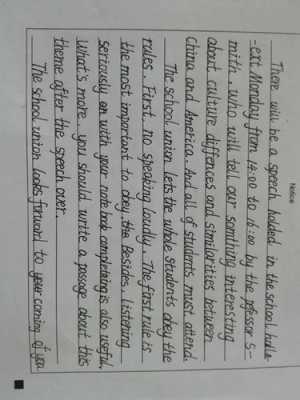 Notice
There will be a speech holded in the school hall n-
-ext Monday from 14:00 to 16:00 by the pofessor S-
mith, who will tell our somthing interesting
about culture diffences and similarities between
China and America. And all of students must attend.
The school union lets the whole students obey the
rules. First, no speaking loudly. The first rule is
the most important to obey. Besides, listening
seriously with your note book completing is also useful.
What's more, you should write a passage about this
theme after the speech over.
The school union looks forward to your coming of you